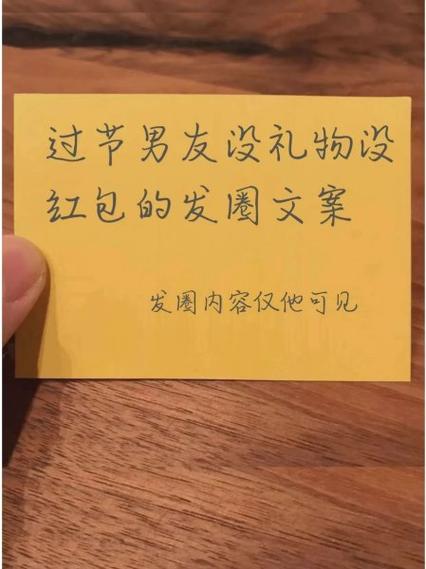 过节男友没礼物没
红包的发圈文案
发圈内容仅他可见